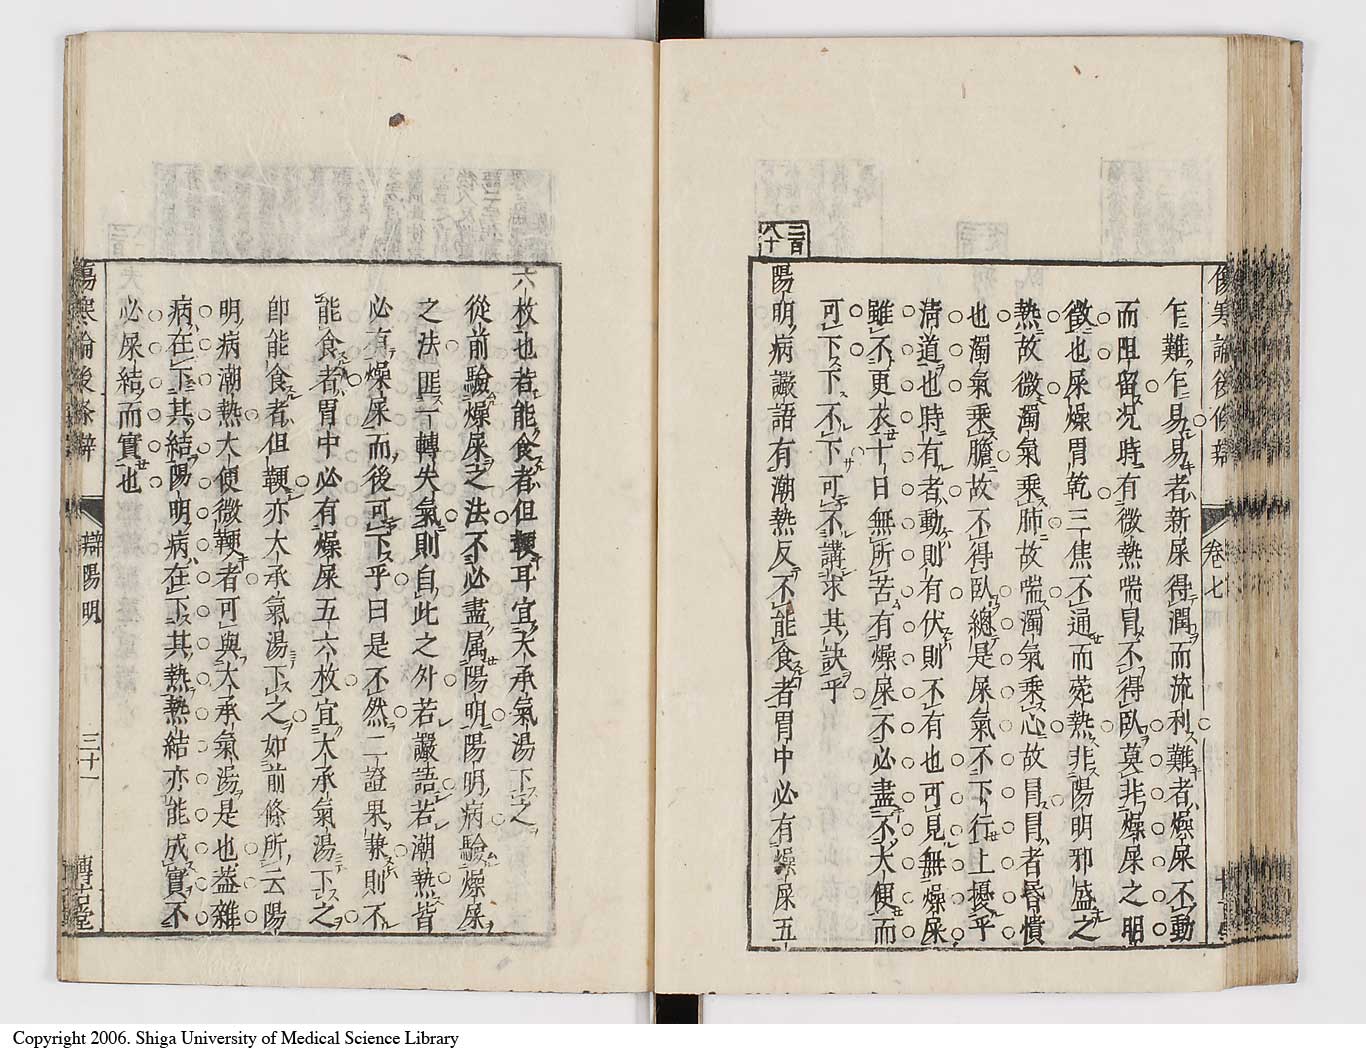 傷寒論後條辯
卷七
乍難乍易易者新屎得潤而流利難者燥屎不動
而阻留況時有微熱喘冒不得臥莫非燥屎之明
徵也屎燥胃乾三焦不通而菀熱非陽明邪盛之
熱故微濁氣乘肺故喘濁氣乘心故冒冒者昏憒
也濁氣乘膽故不得臥總是屎氣不下行上擾乎
清道也時有者動則有伏則不有也可見無燥屎
雖不更衣十日無所苦有燥屎不必盡不大便而
可下下不下可不講求其訣乎
三百
八十
陽明病讝語有潮熱反不能食者胃中必有燥屎五
六枚也若能食者但鞕耳宜大承氣湯下之
從前驗燥屎之法不必盡属陽明陽明病驗燥屎
之法匪一轉失氣則自此之外若讝語若潮熱皆
必有燥屎而後可下乎曰是不然二證果兼則不
能食者胃中必有燥屎五六枚宜大承氣湯下之
卽能食者但鞕亦大承氣湯下之如前條所云陽
明病潮熱大便微鞕者可與大承氣湯是也葢雜
病在下其結陽明病在下其熱熱結亦能成實不
必屎結而實也
傷寒論後條辯
辯陽明
三十一